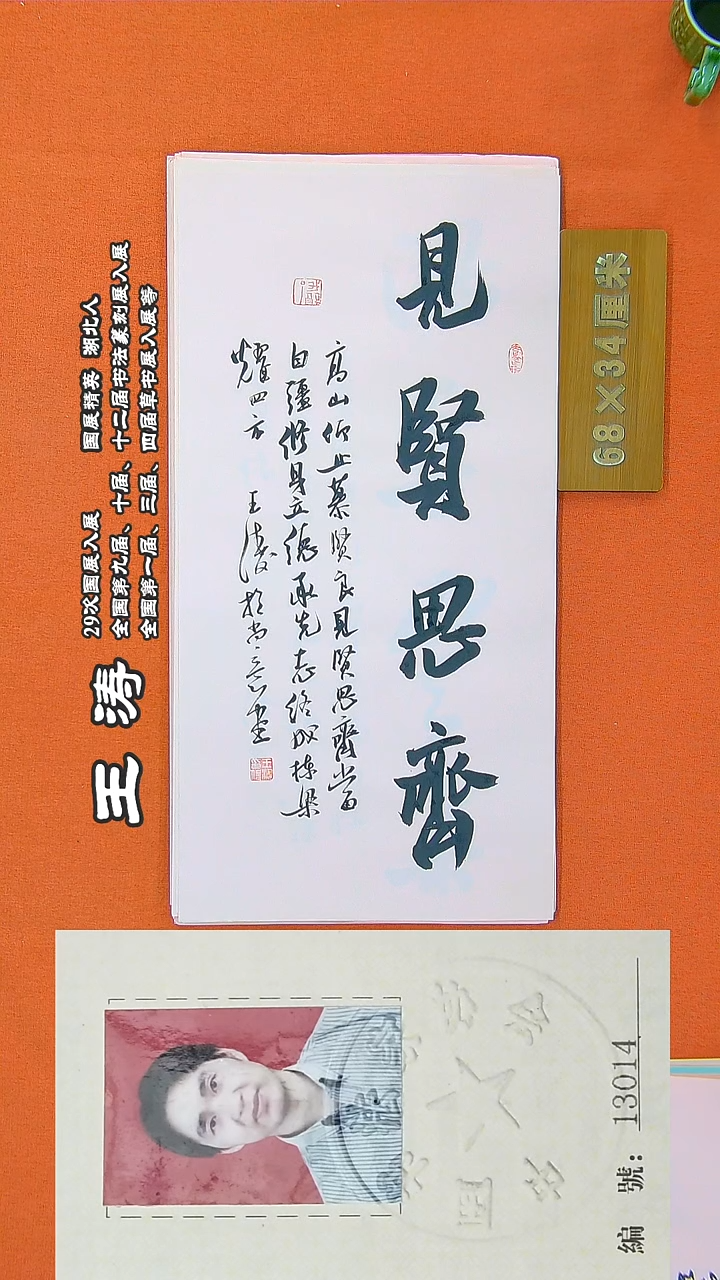 王涛
29次国展入展 国展精英 湖北人
全国第九届、十届、十二届书法篆刻展入展
全国第一届、三届、四届草书展入展等
見賢思齊
高山仰止慕賢良見賢思齊當
自彊修身立德承先志終成棟梁
耀四方 王涛於尚意堂
68×34厘米
編號：13014